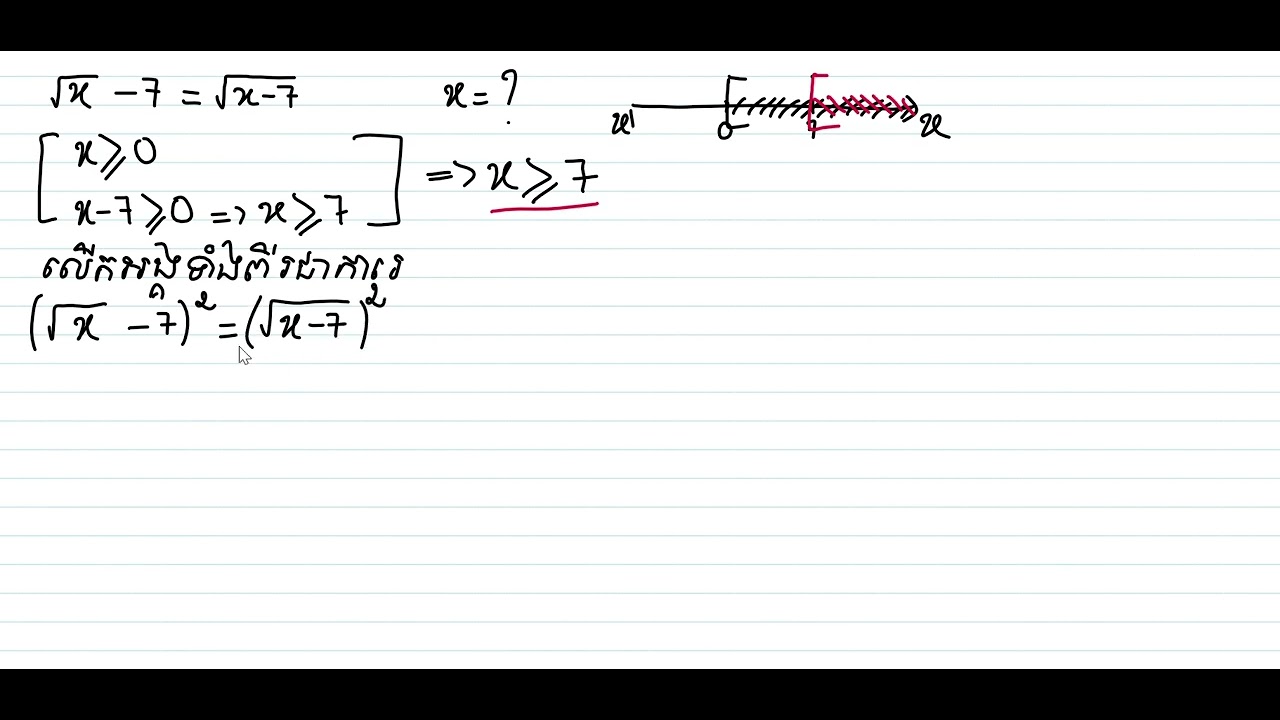 √x - 7 = √x-7    x = ?
x' 0 7 x
x ⩾ 0
x-7 ⩾ 0 => x ⩾ 7    => x ⩾ 7
លើកអង្គទាំងពីរជាការេ
(√x - 7)² = (√x-7)²